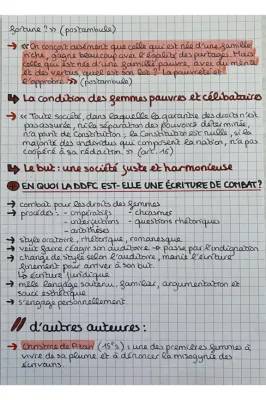 fortune ? » (postambule)
→ « On conçoit aisément que celle qui est née d'une famille
riche, gagne beaucoup avec l'égalité des partages. Mais
celle qui est née d'une famille pauvre, avec du mérite
et des vertus, quel est son lot ? La pauvreté et
l'opprobre » (postambule)
↳ La condition des femmes pauvres et célibataires
→ « Toute société, dans laquelle la garantie des droits n'est
pas assurée, ni la séparation des pouvoirs déterminée,
n'a point de Constitution ; la Constitution est nulle, si la
majorité des individus qui composent la nation, n'a pas
coopéré à sa rédaction. » (art. 16)
↳ Le but : une société juste et harmonieuse
EN QUOI LA DDFC EST-ELLE UNE ÉCRITURE DE COMBAT ?
→ combat pour les droits des femmes
→ procédés : - impératifs - chiasmes
- interjections - questions rhétoriques
- antithèses
→ style oratoire, rhétorique, romanesque
→ veut faire réagir son auditoire → passe par l'indignation
→ change de style selon l'auditoire, manie l'écriture
finement pour arriver à son but.
↳ écriture juridique
→ mêle langage soutenu, familier, argumentation et
souci esthétique
→ s'engage personnellement
// d'autres auteures :
→ Christine de Pizan (15e s) : une des premières femmes à
vivre de sa plume et à dénoncer la misogynie des
écrivains.